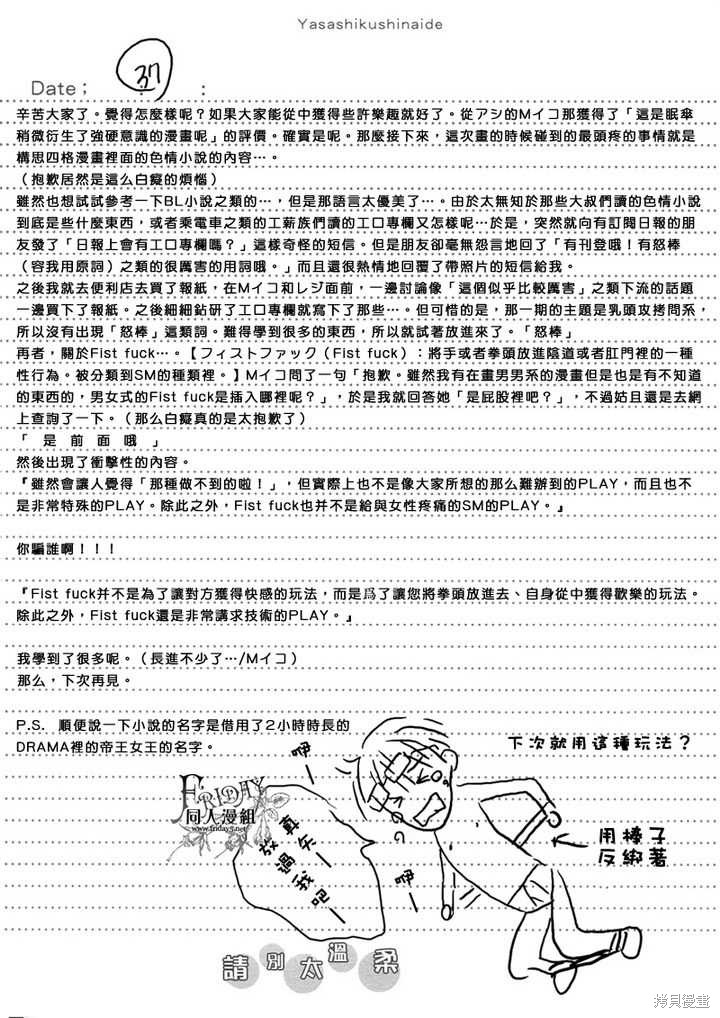 Yasashikushinaide
Date； 37 ：
辛苦大家了。覺得怎麼樣呢？如果大家能從中獲得些許樂趣就好了。從アシのMイコ那獲得了「這是眠傘
稍微衍生了強硬意識的漫畫呢」的評價。確實是呢。那麼接下來，這次畫的時候碰到的最頭疼的事情就是
構思四格漫畫裡面的色情小說的內容…。
（抱歉居然是這么白癡的煩惱）
雖然也想試試參考一下BL小說之類的…，但是那語言太優美了…。由於太無知於那些大叔們讀的色情小說
到底是些什麼東西，或者乘電車之類的工薪族們讀的エロ專欄又怎樣呢…於是，突然就向有訂閱日報的朋
友發了「日報上會有エロ專欄嗎？」這樣奇怪的短信。但是朋友卻毫無怨言地回了「有刊登哦！有怒棒
（容我用原詞）之類的很厲害的用詞哦。」而且還很熱情地回覆了帶照片的短信給我。
之後我就去便利店去買了報紙，在Mイコ和レジ面前，一邊討論像「這個似乎比較厲害」之類下流的話題
一邊買下了報紙。之後細細鉆研了エロ專欄就寫下了那些…。但可惜的是，那一期的主題是乳頭攻拷問系，
所以沒有出現「怒棒」這類詞。難得學到很多的東西，所以就試著放進來了。「怒棒」
再者，關於Fist fuck…。【フィストファック（Fist fuck）：將手或者拳頭放進陰道或者肛門裡的一種
性行為。被分類到SM的種類裡。】Mイコ問了一句「抱歉。雖然我有在畫男男系的漫畫但是也是有不知道
的東西的，男女式的Fist fuck是插入哪裡呢？」，於是我就回答她「是屁股裡吧？」，不過姑且還是去網
上查詢了一下。（那么白癡真的是太抱歉了）
「 是 前 面 哦 」
然後出現了衝擊性的內容。
『雖然會讓人覺得「那種做不到的啦！」，但實際上也不是像大家所想的那么難辦到的PLAY，而且也不
是非常特殊的PLAY。除此之外，Fist fuck也并不是給與女性疼痛的SM的PLAY。』
你騙誰啊！！！
『Fist fuck并不是為了讓對方獲得快感的玩法，而是爲了讓您將拳頭放進去、自身從中獲得歡樂的玩法。
除此之外，Fist fuck還是非常講求技術的PLAY。』
我學到了很多呢。（長進不少了…/Mイコ）
那么，下次再見。
P.S. 順便說一下小說的名字是借用了2小時時長的
DRAMA裡的帝王女王的名字。
下次就用這種玩法？
咿ー
真矢ー
放過我吧ー
咿ー
用棒子
反綁著
FRIDAY
同人漫組
www.fridayz.net
請別太溫柔
拷貝漫畫